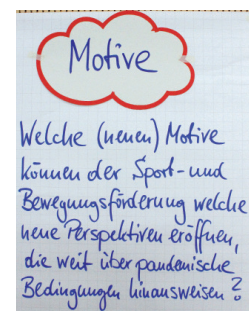 Motive
Welche (neuen) Motive
können der Sport- und
Bewegungsförderung welche
neue Perspektiven eröffnen,
die weit über pandemische
Bedingungen hinausweisen?